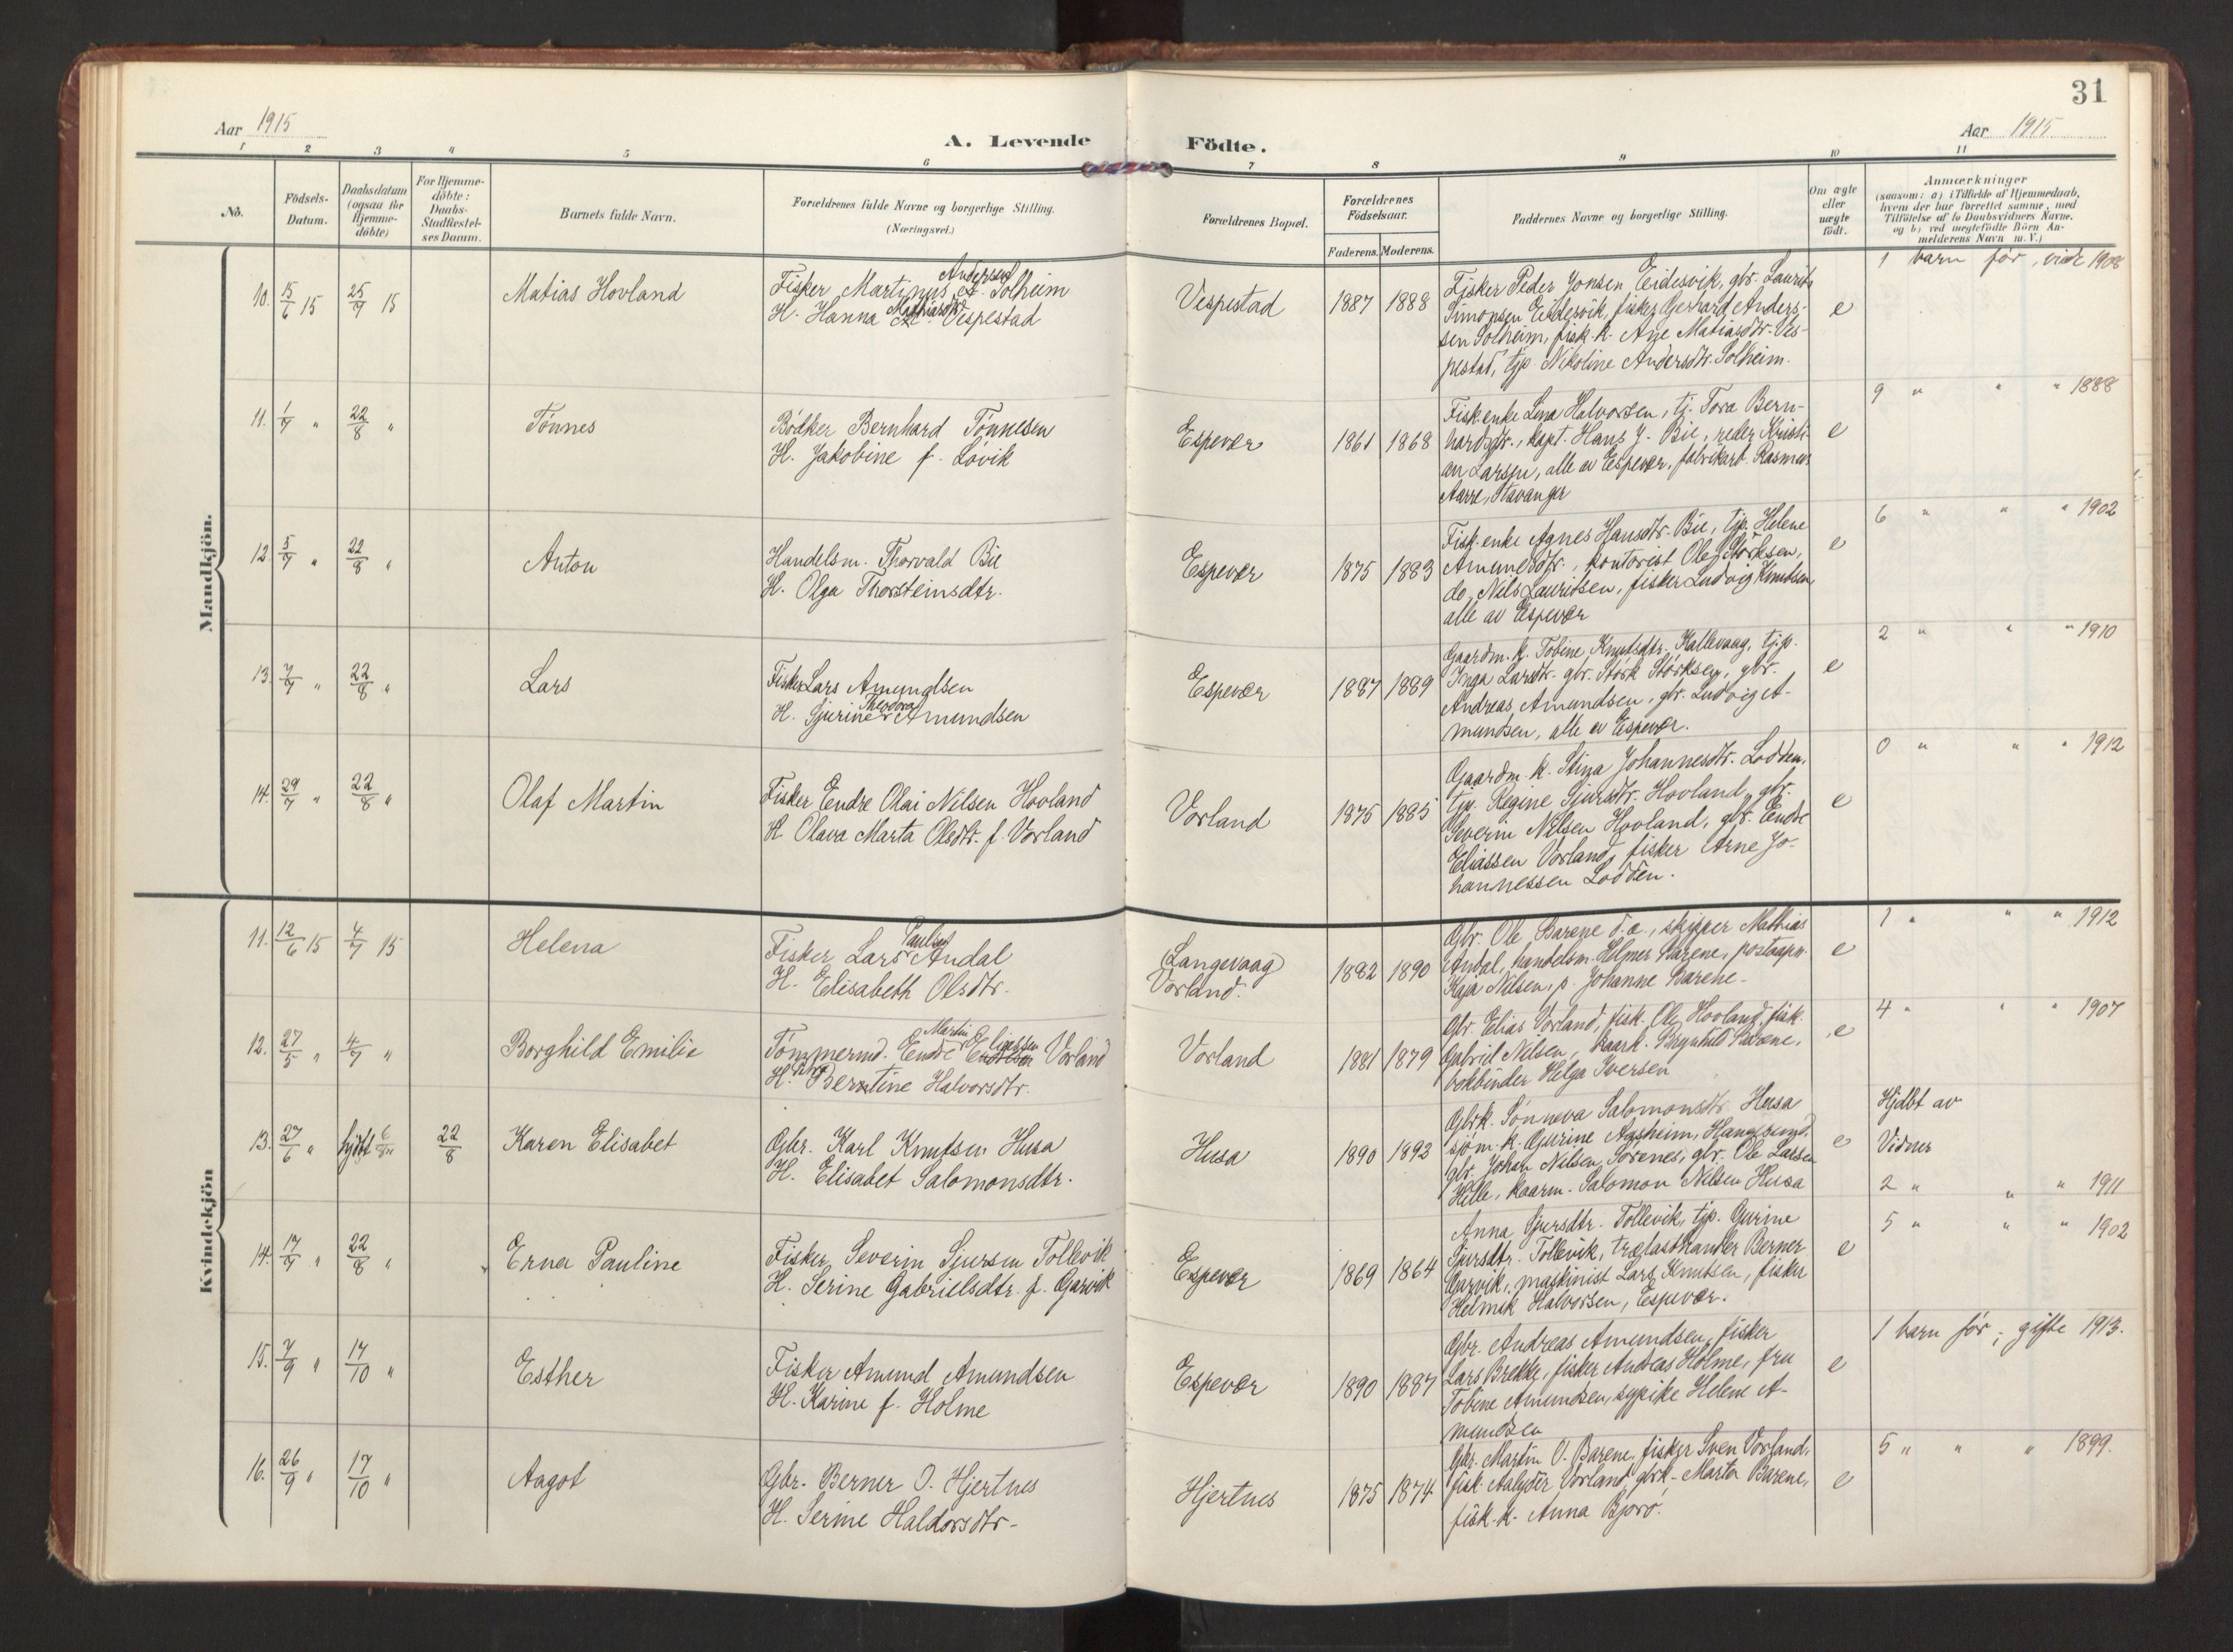 31
Aar 1915
A. Levende
Födte.
Aar 1915
1 2 3 4 5 6 7 8 9 10 11
Nô.
Födsels-
Datum.
Daabsdatum
(ogsaa for
Hjemme-
döbte)
For Hjemme-
döbte:
Daabs-
Stadfæstel-
ses Datum.
Barnets fulde Navn.
Forældrenes fulde Navne og borgerlige Stilling.
(Næringsvei.)
Forældrenes Bopæl.
Forældrenes
Födselsaar.
Faderens. Moderens.
Faddernes Navne og borgerlige Stilling.
Om ægte
eller
uægte
födt.
Anmærkninger
(saasom: a) i Tilfælde af Hjemmedaab,
hvem der har forrettet samme, med
Tilföielse af to Daabsvidners Navne,
og b) ved uægtefödte Börn An-
melderens Navn m. V.)
Mandkjön.
10. 15/6 15 25/7 15 Matias Hovland
Andersen
Fisker Martinus A. Solheim
Mathiasdtr
H. Hanna M. Vespestad
Vespestad 1887 1888
Fisker Peder Jonsen Eidesvik, gbr. Laurits
Simonsen Eidesvik, fisker Gerhard Anders-
sen Solheim, fisk. k. Age Matiasdtr. Ves-
pestad, tjp. Nikoline Andersdtr. Solheim.
e
1 barn før, viet 1908
11. 1/7 " 22/8 " Tønnes
Bødker Bernhard Tønnesen
H. Jakobine f. Løvik
Espevær 1861 1868
Fisk.enke Lina Halvorsen, tj. Tora Bern-
hardsdtr., kapt. Hans J. Bie, reder Kristi-
an Larsen, alle av Espevær, fabrikarb. Rasmus
Aarre, Stavanger
e
9 " " " 1888
12. 5/7 " 22/8 " Anton
Handelsm. Thorvald Bie
H. Olga Thorsteinsdtr.
Espevær 1875 1883
Fisk.enke Agnes Hansdtr. Bie, tjp. Helene
Amundsdtr., kontorist Ole Størksen,
do. Nils Lauritsen, fisker Ludvig Knutsen,
alle av Espevær
e
6 " " " 1902
13. 7/7 " 22/8 " Lars
Fisker Lars Amundsen
Theodora
H. Gjurine Amundsen
Espevær 1887 1889
Gaardm. k. Tobine Knutsdtr. Kallevaag, tjp.
Inga Larsdtr. gbr. Størk Størksen, gbr.
Andreas Amundsen, gbr. Ludvig A-
mundsen, alle av Espevær.
e
2 " " " 1910
14. 29/7 " 22/8 " Olaf Martin
Fisker Endre Olai Nilsen Hovland
H. Olava Marta Olsdtr. f. Vorland
Vorland 1875 1885
Gaardm. k. Stina Johannesdtr. Lodden,
tjp. Regine Sjursdtr. Hovland, gbr.
Severin Nilsen Hovland, gbr. Endre
Eliassen Vorland, fisker Arne Jo-
hannessen Lodden.
e
0 " " " 1912
Kvindekjön
11. 12/6 15 4/7 15 Helena
Paulsen
Fisker Lars Andal
H. Elisabeth Olsdtr.
Langevaag
Vorland.
1882 1890
Gbr. Ole Barene d.æ., skipper Mathias
Andal, handelsm. Helmer Barene, postaapn.
Kaja Nilsen, p. Johanne Barene.
e
1 " " " 1912
12. 27/5 " 4/7 " Borghild Emilie
Martin Eliassen
Tømmermd. Endre Endresen Vorland
H. Berntine Halvorsdtr.
Vorland 1881 1879
Gbr. Elias Vorland, fisk. Ole Hovland, fisk.
Gabriel Nilsen, kaark. Brynhild Barene,
bokbinder Helga Iversen
e
4 " " " 1907
13. 27/6 " hjdbt 6/8 22/8 Karen Elisabet
Gbr. Karl Knutsen Husa
H. Elisabet Salomonsdtr.
Husa 1890 1893
Gbrk. Sønneva Salomonsdtr. Husa
sjøm. k. Gurine Aasheim, Haugesund,
gbr. Johan Nilsen Sørenes, gbr. Ole Larsen
Hille, kaarm. Salomon Nilsen Husa
e
Hjdbt av
Vidner
2 " " " 1911
14. 17/7 " 22/8 " Erna Pauline
Fisker Severin Sjursen Tollevik
H. Serine Gabrielsdtr. f. Garvik
Espevær 1869 1864
Anna Sjursdtr. Tollevik, tjp. Gurine
Sjursdtr. Tollevik, trælasthandler Berner
Garvik, maskinist Lars Knutsen, fisker
Helmik Halvorsen, Espevær.
e
5 " " " 1902
15. 7/9 " 17/10 " Esther
Fisker Amund Amundsen
H. Karine f. Holme
Espevær 1890 1887
Gbr. Andreas Amundsen, fisker
Lars Brekke, fisker Andreas Holme, fru
Tobine Amundsen, sypike Helene A-
mundsen
e
1 barn før; gifte 1913.
16. 26/9 " 17/10 " Aagot
Gbr. Berner O. Hjertnes
H. Serine Haldorsdtr.
Hjertnes 1875 1874
Gbr. Martin O. Barene, fisker Sven Vorland,
fisk. Vorland, gbrk. Marta Barene,
fisk. k. Anna Bjorø.
e
5 " " " 1899.